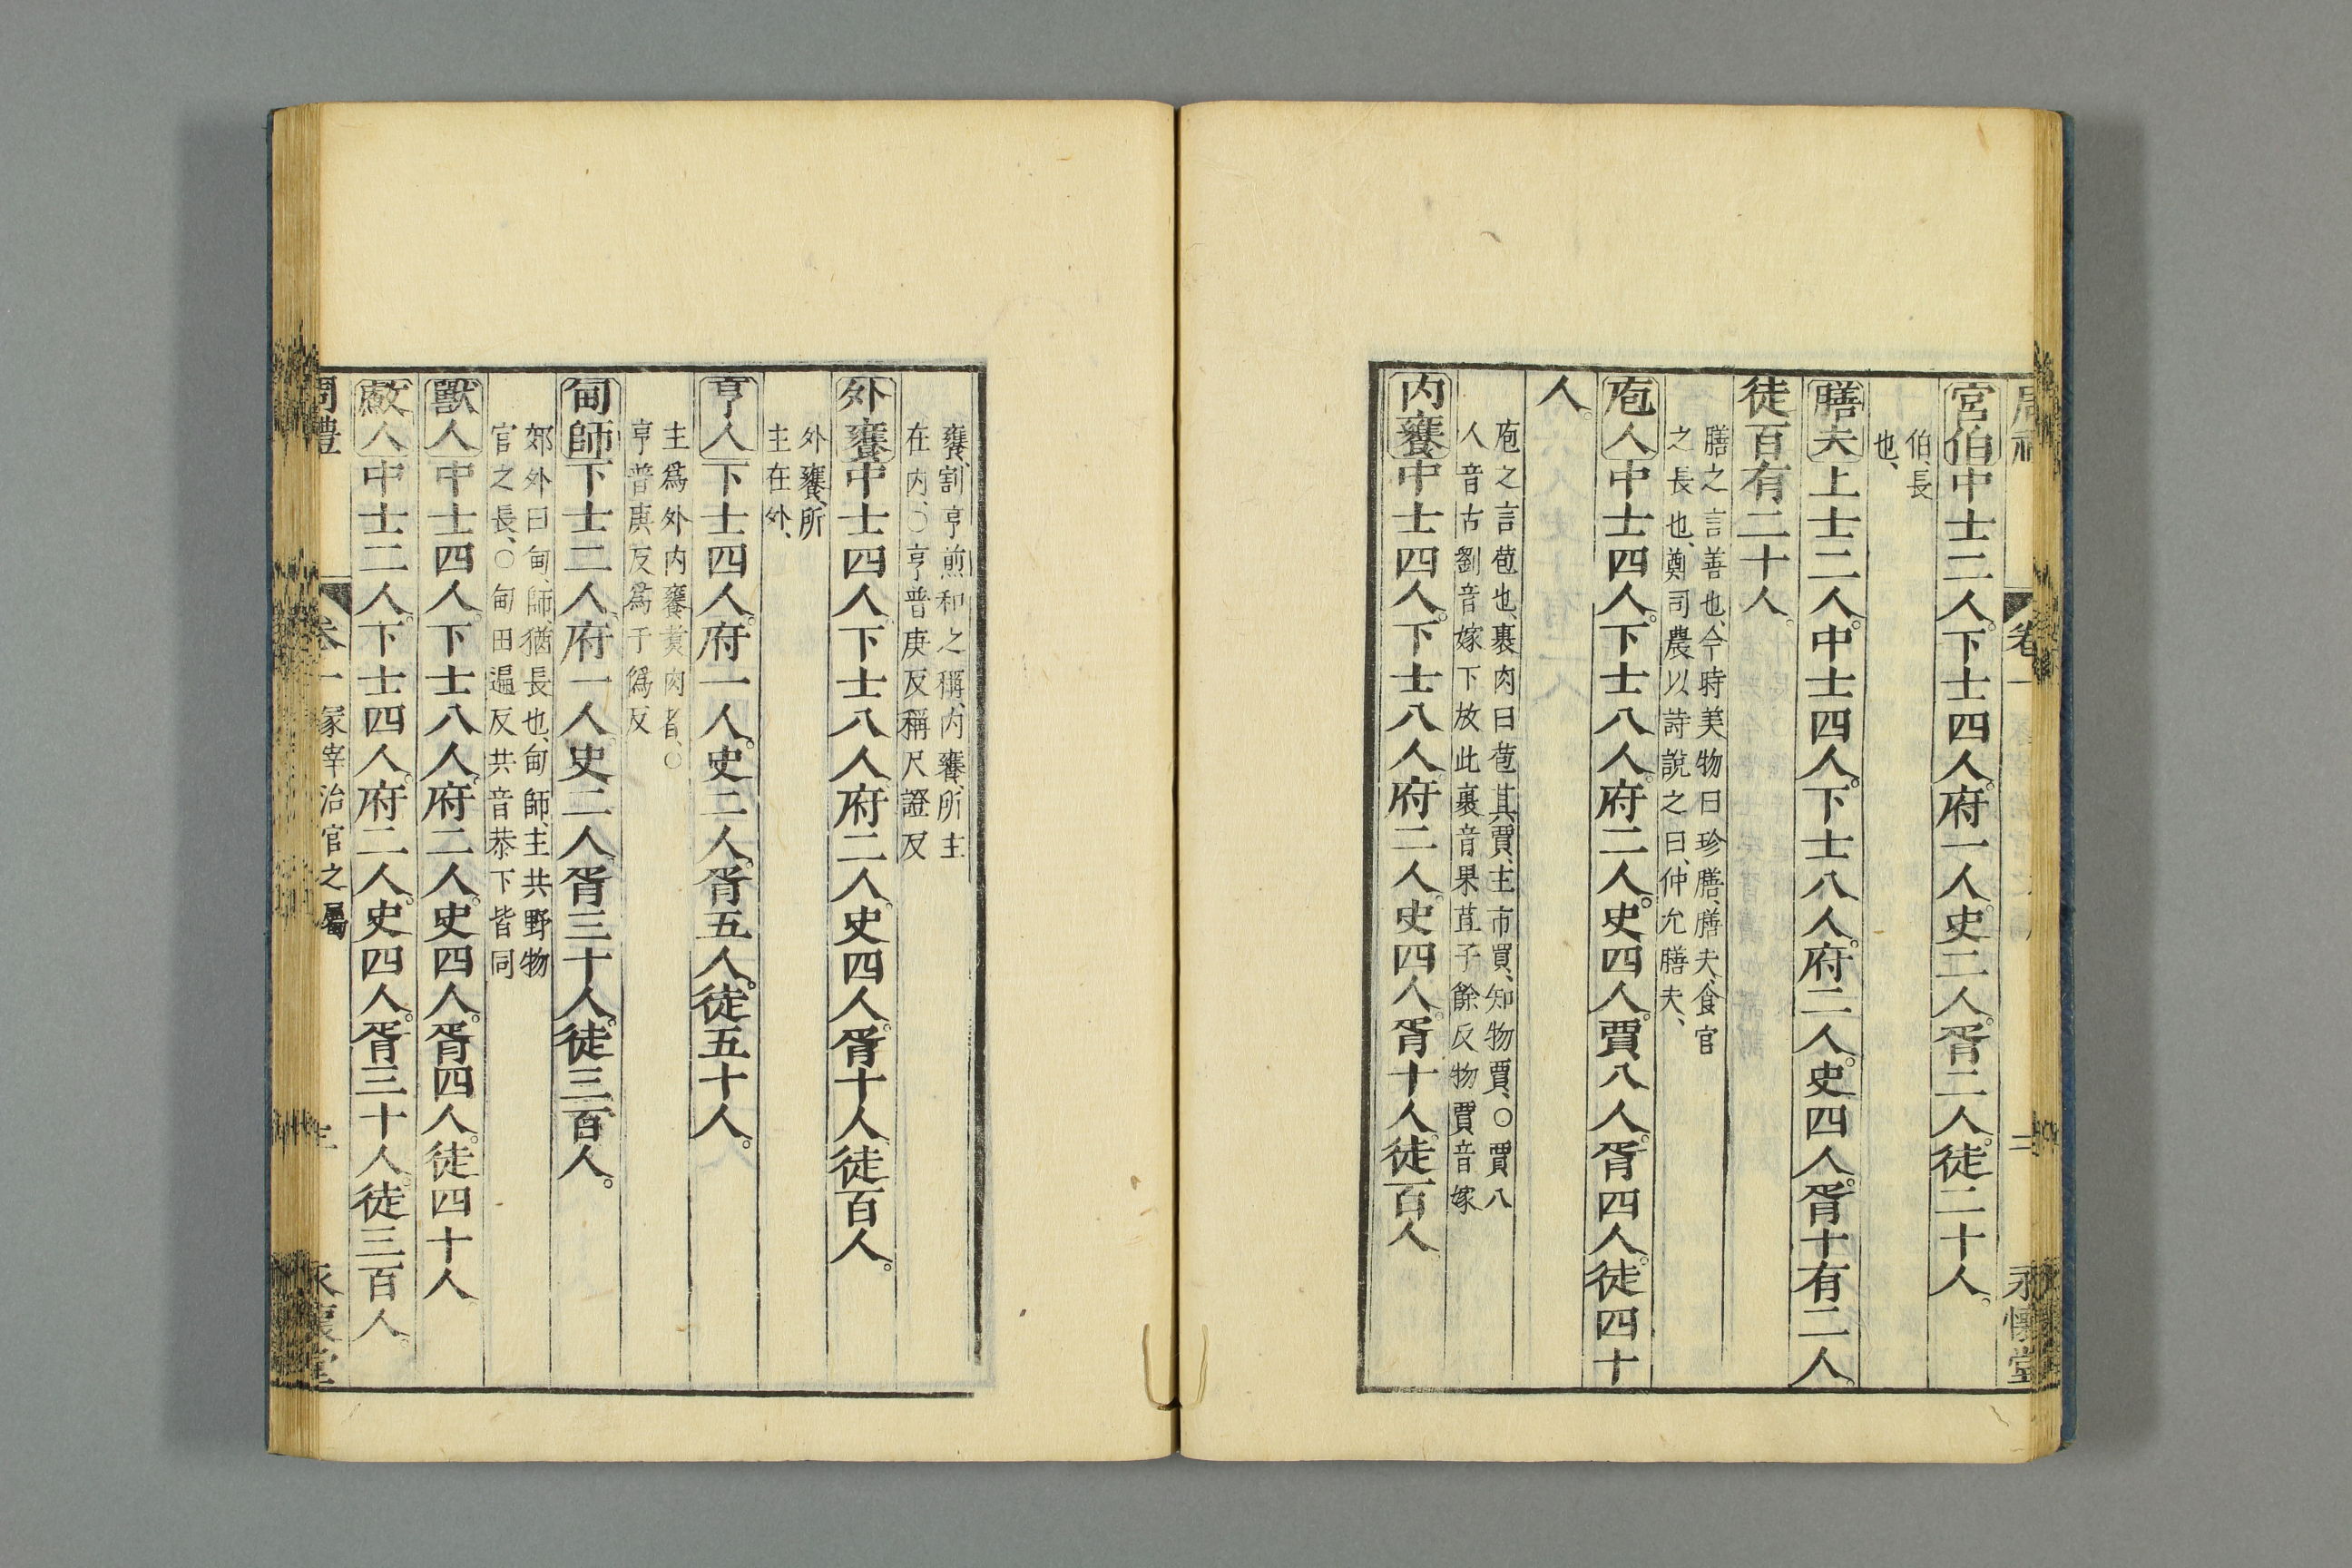 宮伯中士二人。下士四人。府一人。史二人。胥二人。徒二十人。
伯、長
也、
膳夫上士二人。中士四人。下士八人。府二人。史四人。胥十有二人。
徒百有二十人。
膳之言善也、今時美物曰珍膳、膳夫、食官
之長也、鄭司農以詩說之曰、仲允膳夫、
庖人中士四人。下士八人。府二人。史四人。賈八人。胥四人。徒四十
人。
庖之言苞也、裹肉曰苞苴、賈、主市買、知物賈、○賈八
人音古劉音嫁下放此裹音果苴子餘反物賈音嫁
内饔中士四人。下士八人。府二人。史四人。胥十人。徒百人。
饔、割亨煎和之稱、内饔、所主
在内、○亨普庚反稱尺證反
外饔中士四人。下士八人。府二人。史四人。胥十人。徒百人。
外饔、所
主在外、
亨人下士四人。府一人。史二人。胥五人。徒五十人。
主爲外内饔煑肉者、○
亨普庚反爲于僞反
甸師下士二人。府一人。史二人。胥三十人。徒三百人。
郊外曰甸、師、猶長也、甸師、主共野物
官之長、○甸田遍反共音恭下皆同
獸人中士四人。下士八人。府二人。史四人。胥四人。徒四十人
䱷人中士二人。下士四人。府二人。史四人。胥三十人。徒三百人。
周禮 卷一 冡宰治官之屬 三 永懷堂